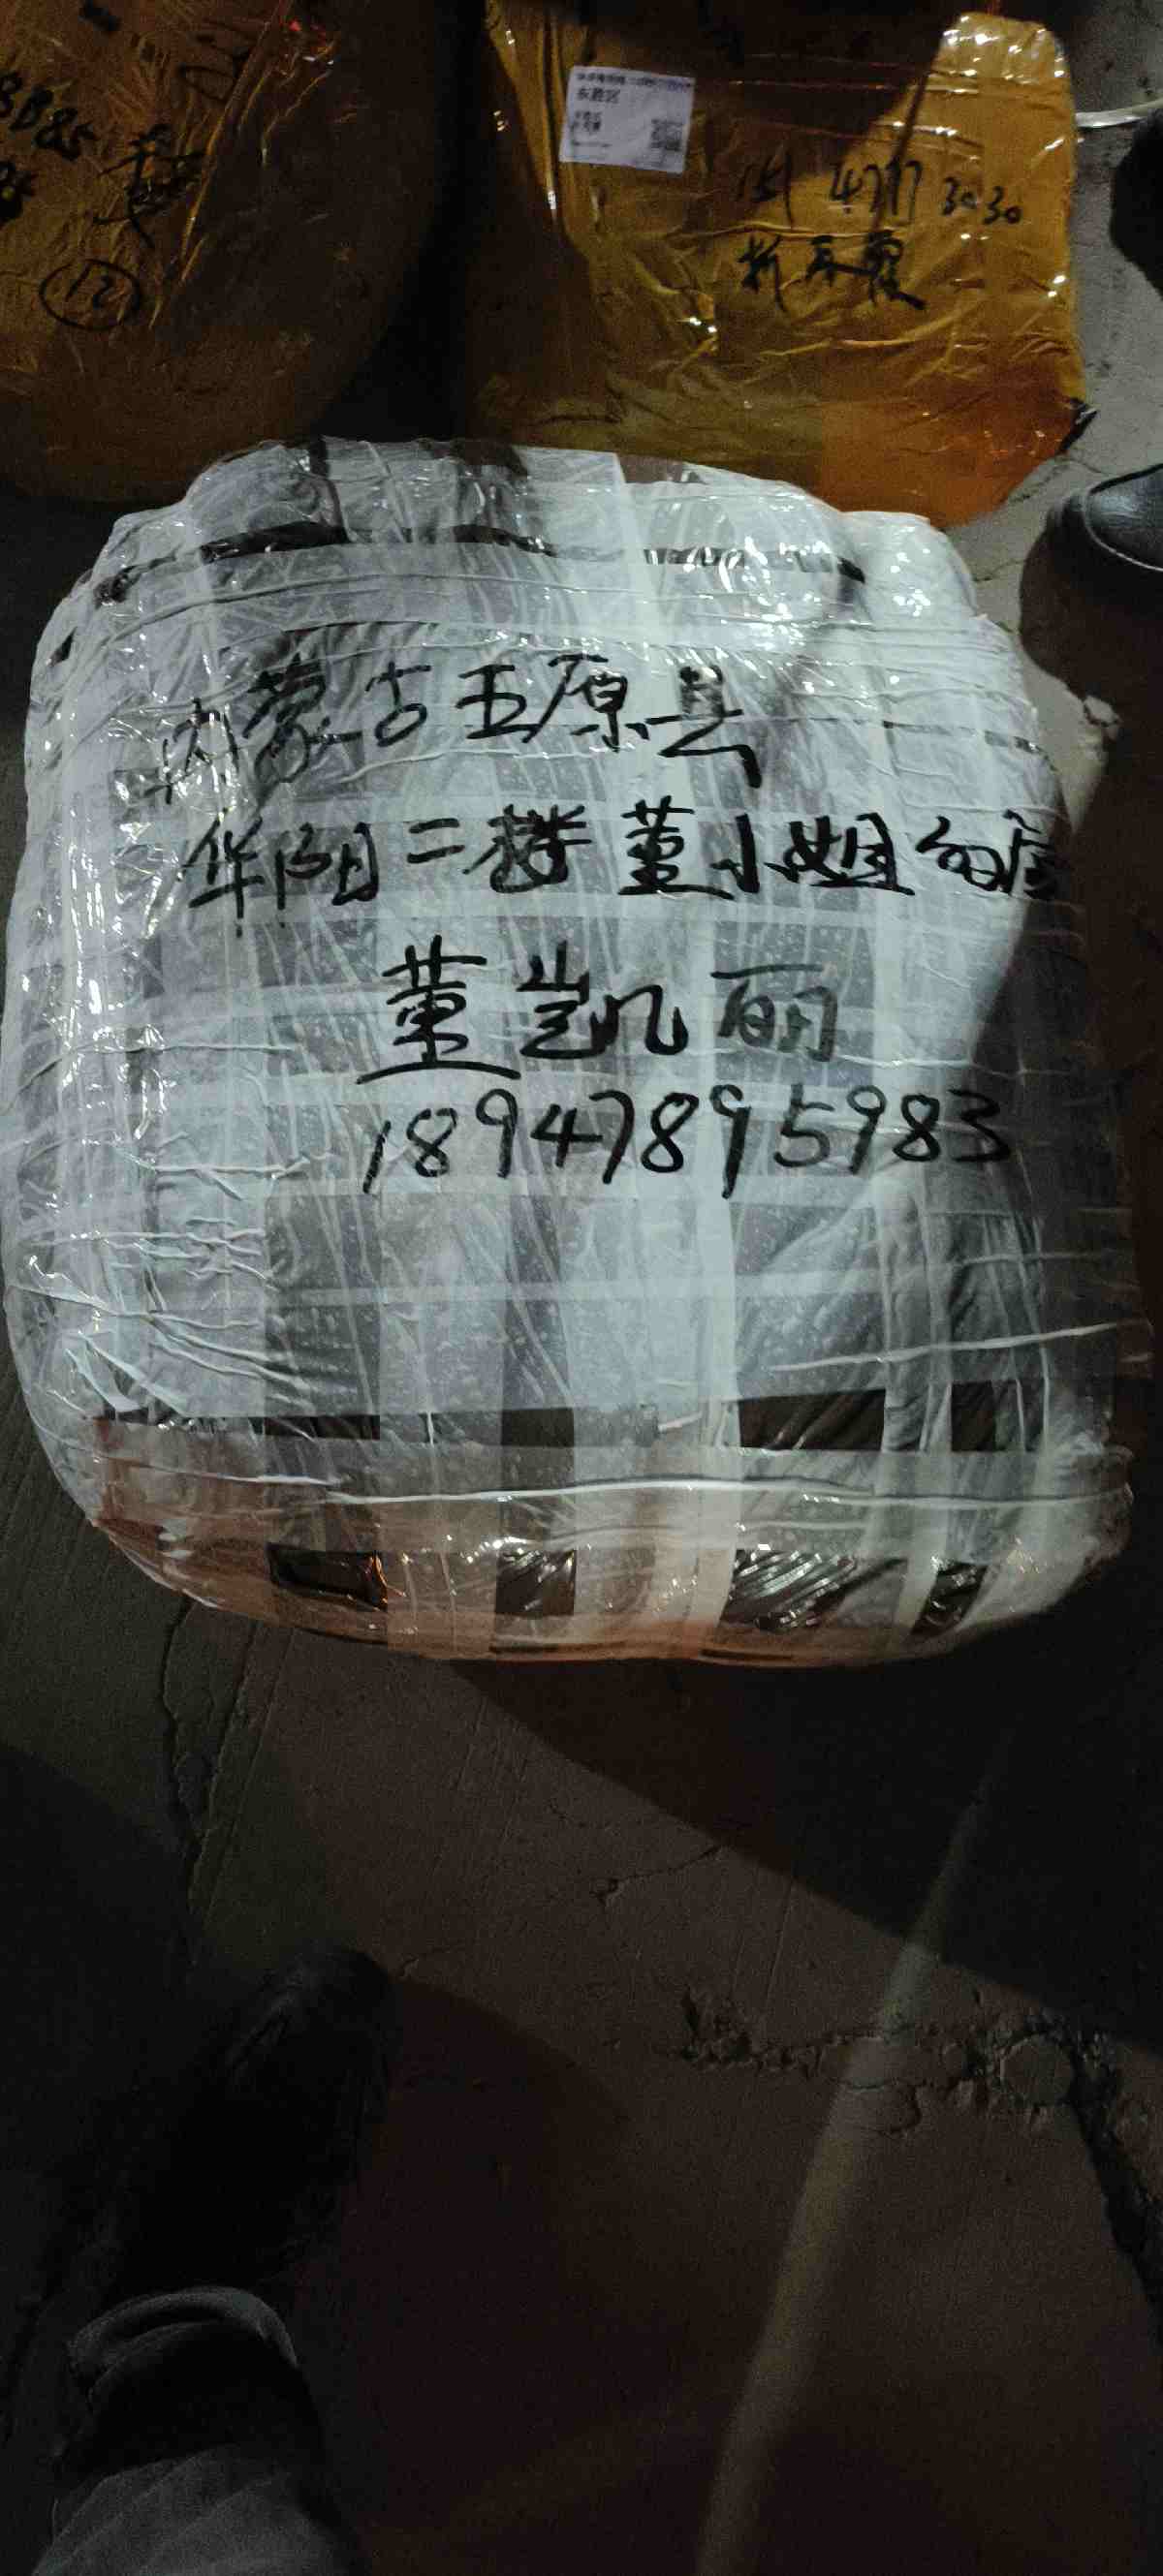 12
东胜区
151 4777 3030
内蒙古五原县
华阳二楼董小姐的店
董凯丽
18947895983